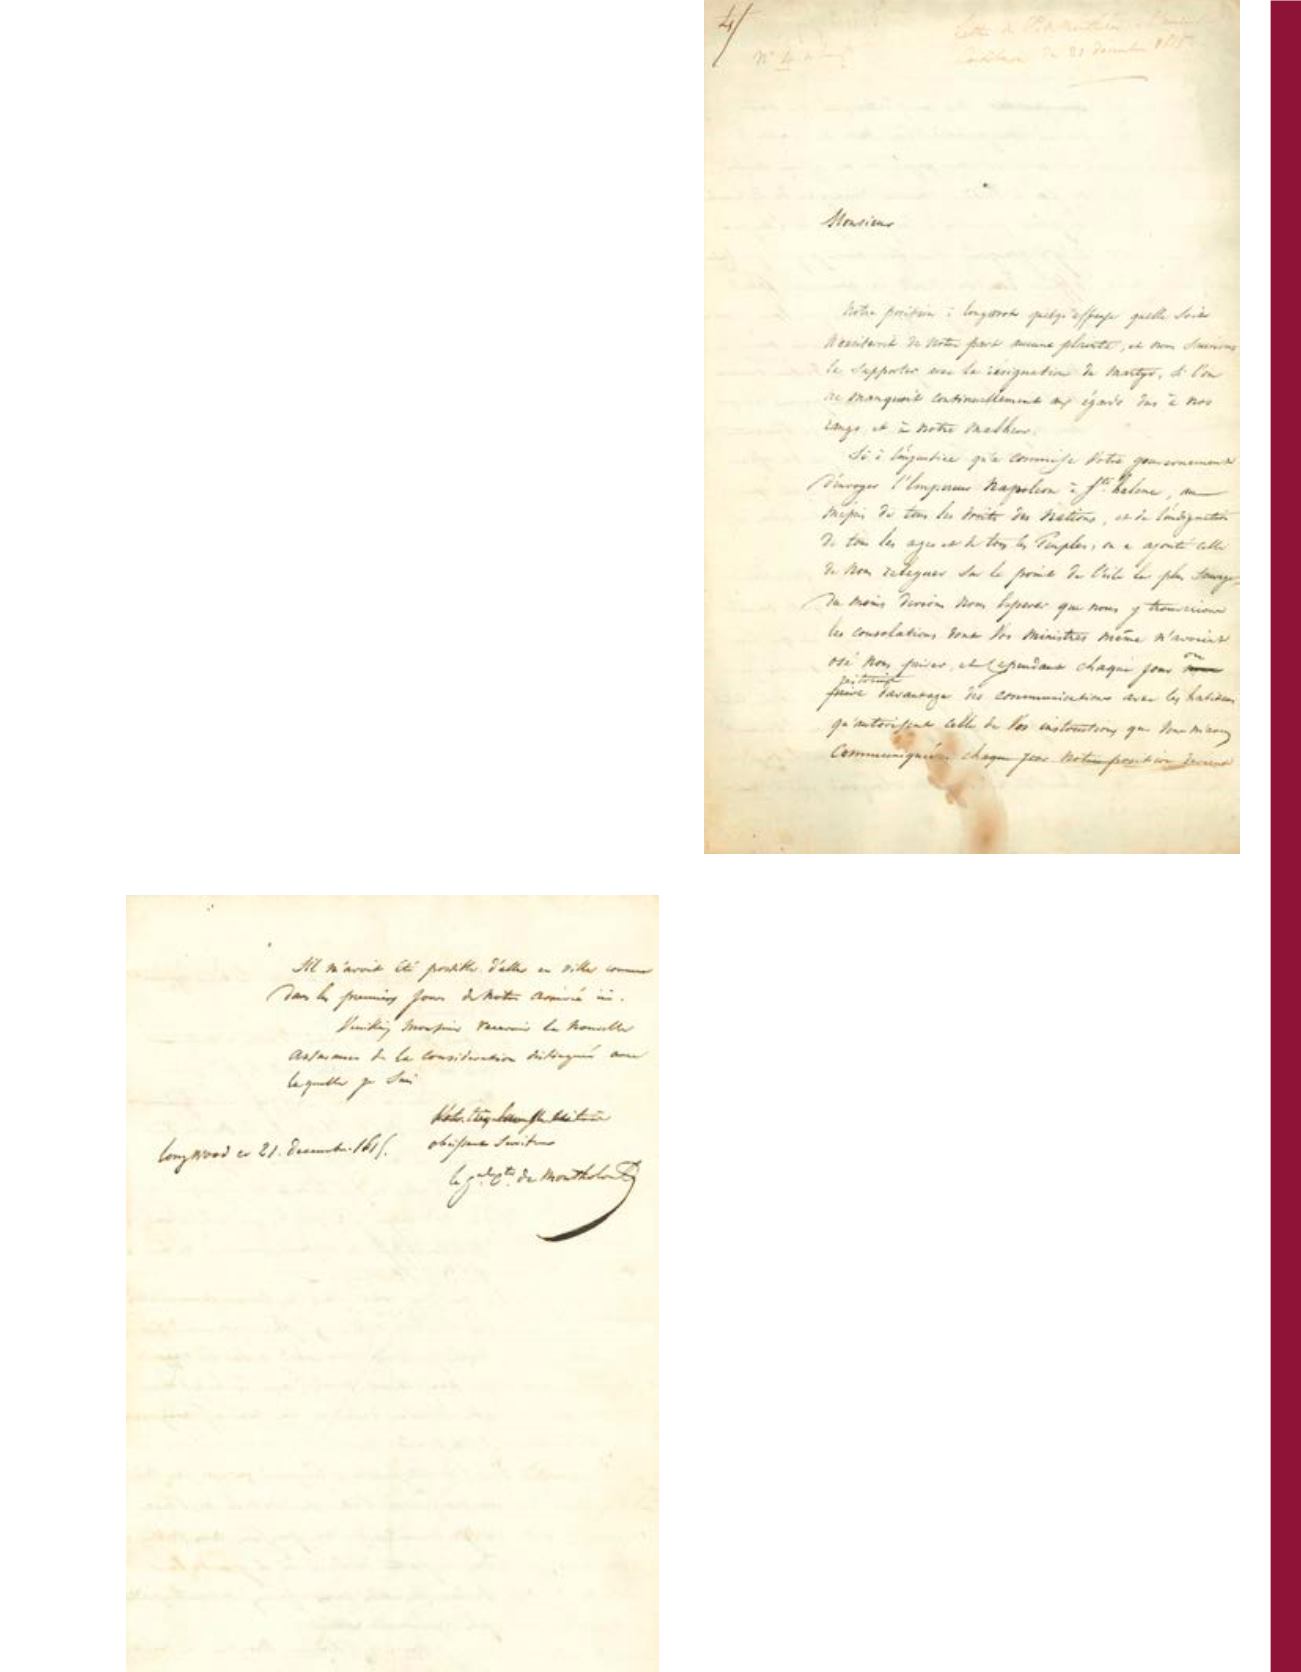 4/
N° 4
Lettre de
du 21 décembre 1815
Monsieur
Notre position à longwood quelqu'affreuse quelle Soit
n'exciterait de notre part aucune plainte, et nous Saurions
la Supporter avec la résignation du martyr, Si l'on
ne manquoit continuellement aux égards dus à nos
rangs et à notre malheur.
Si à l'injustice qu'a commise Votre gouvernement
d'envoyer l'Empereur Napoleon à Ste helene, au
mépris de tous les droits des Nations, et de l'indignation
de tous les ages et de tous les Peuples, on a ajouté celle
de nous releguer Sur le point de l'isle le plus Sauvage,
du moins devions nous Esperer que nous y trouverions
les consolations dont Vos ministres même n'avoient
osé nous priver, et Cependant chaque jour on
davantage les communications avec les habitans
qu'autorisent celle de Vos instructions que Vous m'avez
Communiquées chaque jour notre position devient
S'il m'avoit été possible d'aller en ville comme
dans les premiers jours de notre arrivée ici.
Veuillez Monsieur recevoir la nouvelle
assurance de la considération distinguée avec
laquelle je Suis
Votre très humble et très
obeissant Serviteur
longwood ce 21. decembre 1815.
le gal Cte de Montholon